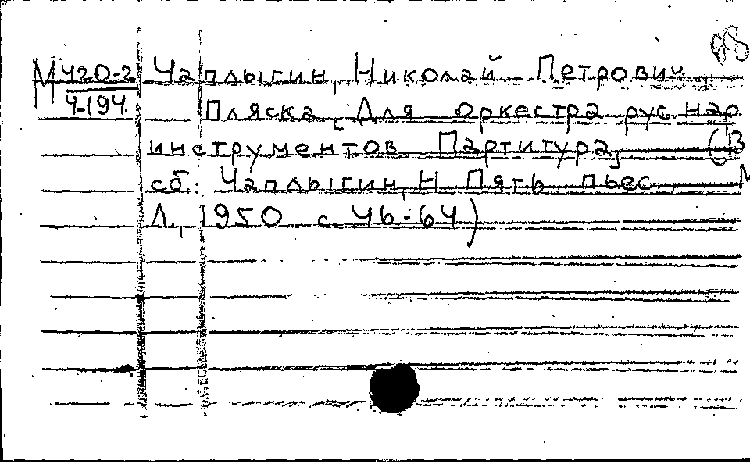 М420-2 Чаплыгин, Николай Петрович
Ч-194 Пляска. Для оркестра рус. нар.
инструментов Партитура, (В
сб.: Чаплыгин, Н Пять пьес М
Л., 1950 с. 46-64)